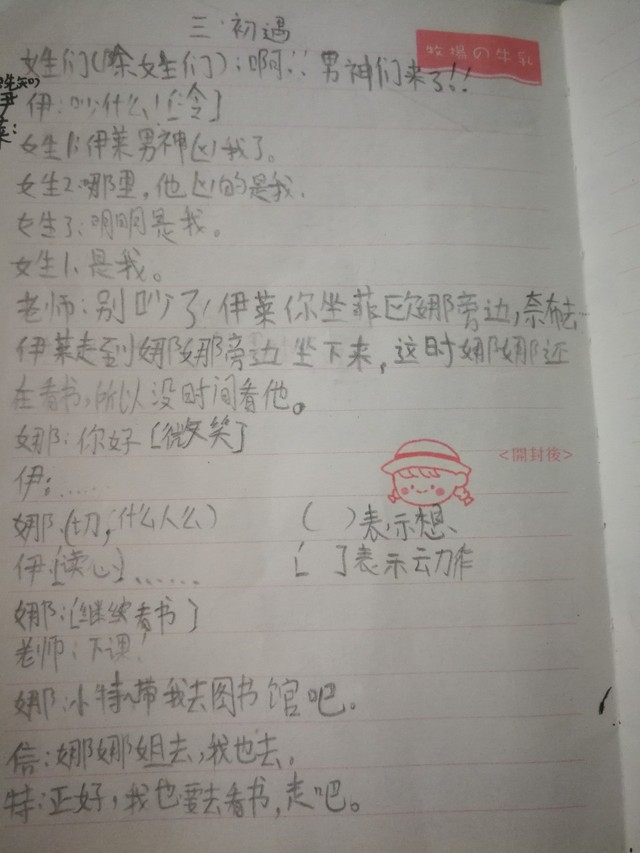 三.初遇
牧場の牛乳
女生们(除女生们):啊!!男神们来了!!
伊:吵什么![冷]
女生1:伊莱男神凶我了。
女生2:哪里,他凶的是我.
女生3:明明是我。
女生1:是我。
老师:别吵了!伊莱你坐菲欧娜旁边,奈布去
伊莱走到娜娜旁边坐下来,这时娜娜还
在看书,所以没时间看他。
娜:你好[微笑]
<開封後>
伊:......
娜:(切,什么人么)
( )表示想、
伊:[读心]......
[ ]表示云力作
娜:[继续看书]
老师:下课!
娜:小特,带我去图书馆吧。
信:娜娜姐去,我也去,
特:正好,我也要去看书,走吧。